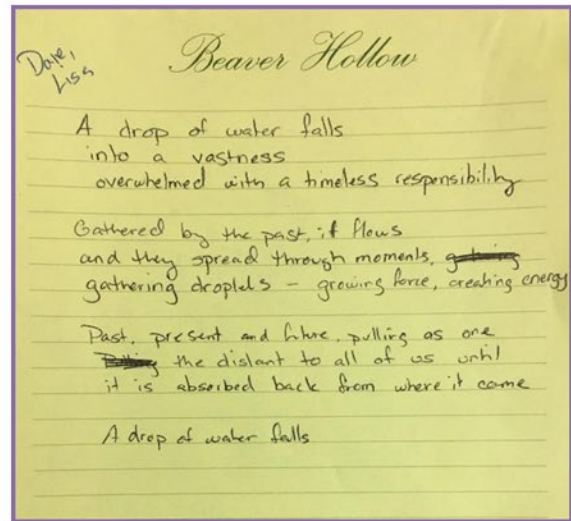 Beaver Hollow
Lisa
A drop of water falls
into a vastness
overwhelmed with a timeless responsibility
Gathered by the past, it flows
and they spread through moments,
gathering droplets – growing force, creating energy
Past, present and future, pulling as one
the distant to all of us until
it is absorbed back from where it came
A drop of water falls